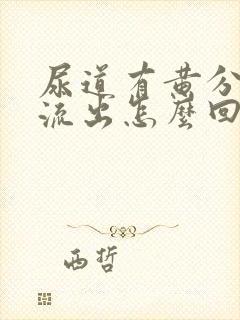 尿道有黄分
流出怎麼回
西哲